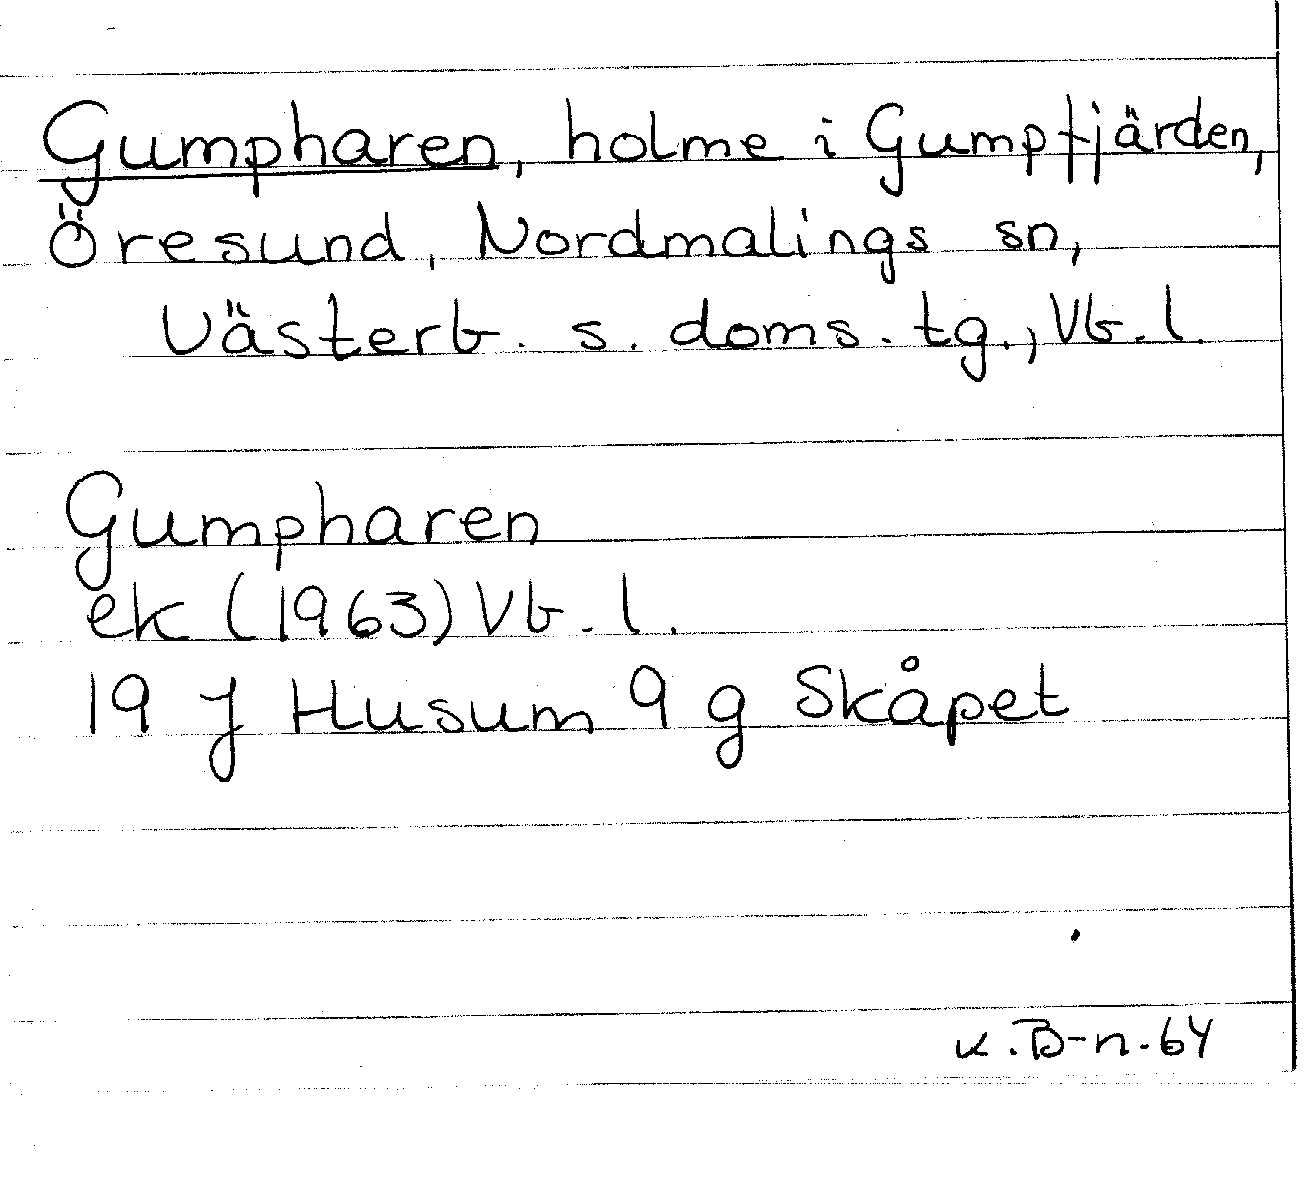 Gumpharen, holme i Gumpfjärden,
Öresund, Nordmalings sn,
Västerb. s. doms. tg., Vb. l.
Gumpharen
ek (1963) Vb. l.
19 J Husum 9 g Skåpet
K. B-n. 64